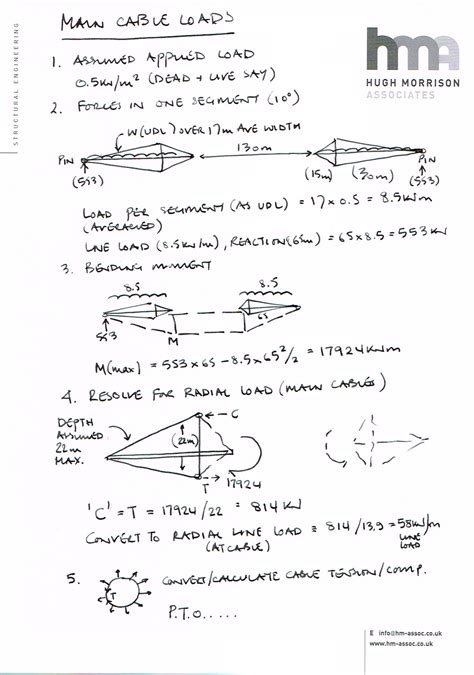 MAIN CABLE LOADS
STRUCTURAL ENGINEERING
hma
HUGH MORRISON
ASSOCIATES
1. ASSUMED APPLIED LOAD
0.5kN/m² (DEAD + LIVE SAY)
2. FORCES IN ONE SEGMENT (10°)
W(UDL) OVER 17m AVE WIDTH
130m
PIN
(553)
(15m) (30m)
PIN
(553)
LOAD PER SEGMENT (AS UDL) = 17 x 0.5 = 8.5kN/m
(AVERAGED)
LINE LOAD (8.5kN/m), REACTION(65m) = 65 x 8.5 = 553 kN
3. BENDING MOMENT
8.5 8.5
65
553
M
M(max) = 553 x 65 - 8.5 x 65²/2 = 17924kNm
4. RESOLVE FOR RADIAL LOAD (MAIN CABLES)
DEPTH
ASSUMED
22m
MAX.
C
(22m)
T
17924
'C' = T = 17924/22 = 814 kN
CONVERT TO RADIAL LINE LOAD = 814/13.9 = 58kN/m
(AT CABLE)
LINE
LOAD
5. T CONVERT/CALCULATE CABLE TENSION/COMP.
P.T.O.....
E info@hm-assoc.co.uk
www.hm-assoc.co.uk